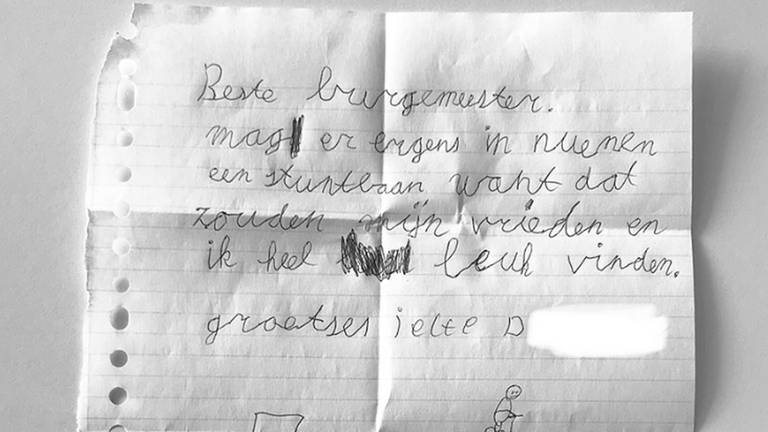 Beste burgemeester.
mag er ergens in nuenen
een stuntbaan want dat
zouden mijn vrieden en
ik heel leuk vinden.
groetjes jelte D